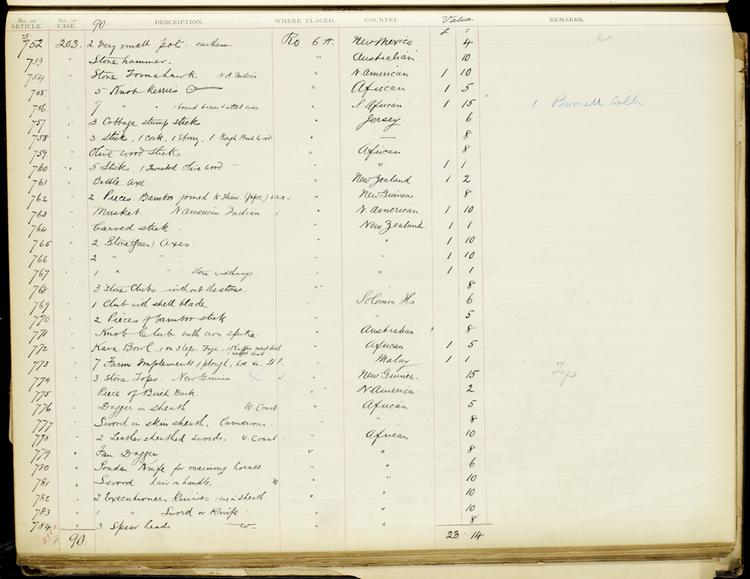 No. of ARTICLE. No. of CASE. DESCRIPTION. WHERE PLACED. COUNTRY. Value REMARKS.
90 £ s
752 203. 2 Very small pots. earthen Ro 6 A. New Mexico 4
753 " Stone hammer. " Australian 10
754 " Stone Tomahawk. N A Indian " N. American 1 10
755 " 5 Knob Kerries " African 1 5
756 " 7 " " " S. African 1 15 1 Purnell Colln
757 " 3 Cabbage stump sticks " Jersey 6
758 " 3 Sticks, 1 Cork, 1 Ebony, 1 Rough Bark Wood " — 8
759 " Olive wood Sticks " African 8
760 " 5 Sticks, 1 Twisted Olive wood " " 1 1
761 " Battle axe. " New Zealand 1 2
762 " 2 Pieces Bamboo joined to Straw (pipe) " New Guinea 8
763 " Musket. N American Indian " N. American 1 10
764 " Carved stick. " New Zealand 1 1
765 " 2 Stone Axes. " " 1 10
766 " 2 " " " " 1 10
767 1 " " Stone widthways " " 1 1
768 " 3 Stone Clubs without the stones. " " 8
769 " 1 Club with shell blade " Solomon Is 6
770 " 2 Pieces of bamboo stick " 5
771 " Knob Club with iron spike " Australian 8
772 " Kava Bowl, 1 on 3 legs. Fiji. " African 1 5
773 " 7 Farm Implements 1 plough, hoe &c. " Malay 1 1
774 " 3. Stone Tops. New Guinea X " New Guinea. 15 Tops
775 " Piece of Birch Bark. " N. America 2
776 " Dagger in sheath W. Coast " African 5
777 " Sword in skin sheath. Cameroon. " " 8
778 " 2 Leather sheathed swords. W. Coast " African 10
779 " Fan Dagger " " 8
780 " Soudan Knife for maiming horses " " 6
781 " Sword hair on handle. W. " " 10
782 " 2 Executioners Knives one in sheath " " 10
783 " 1 " Sword or Knife " " 10
784 " 3 Spear heads W " " 8
90 23 14